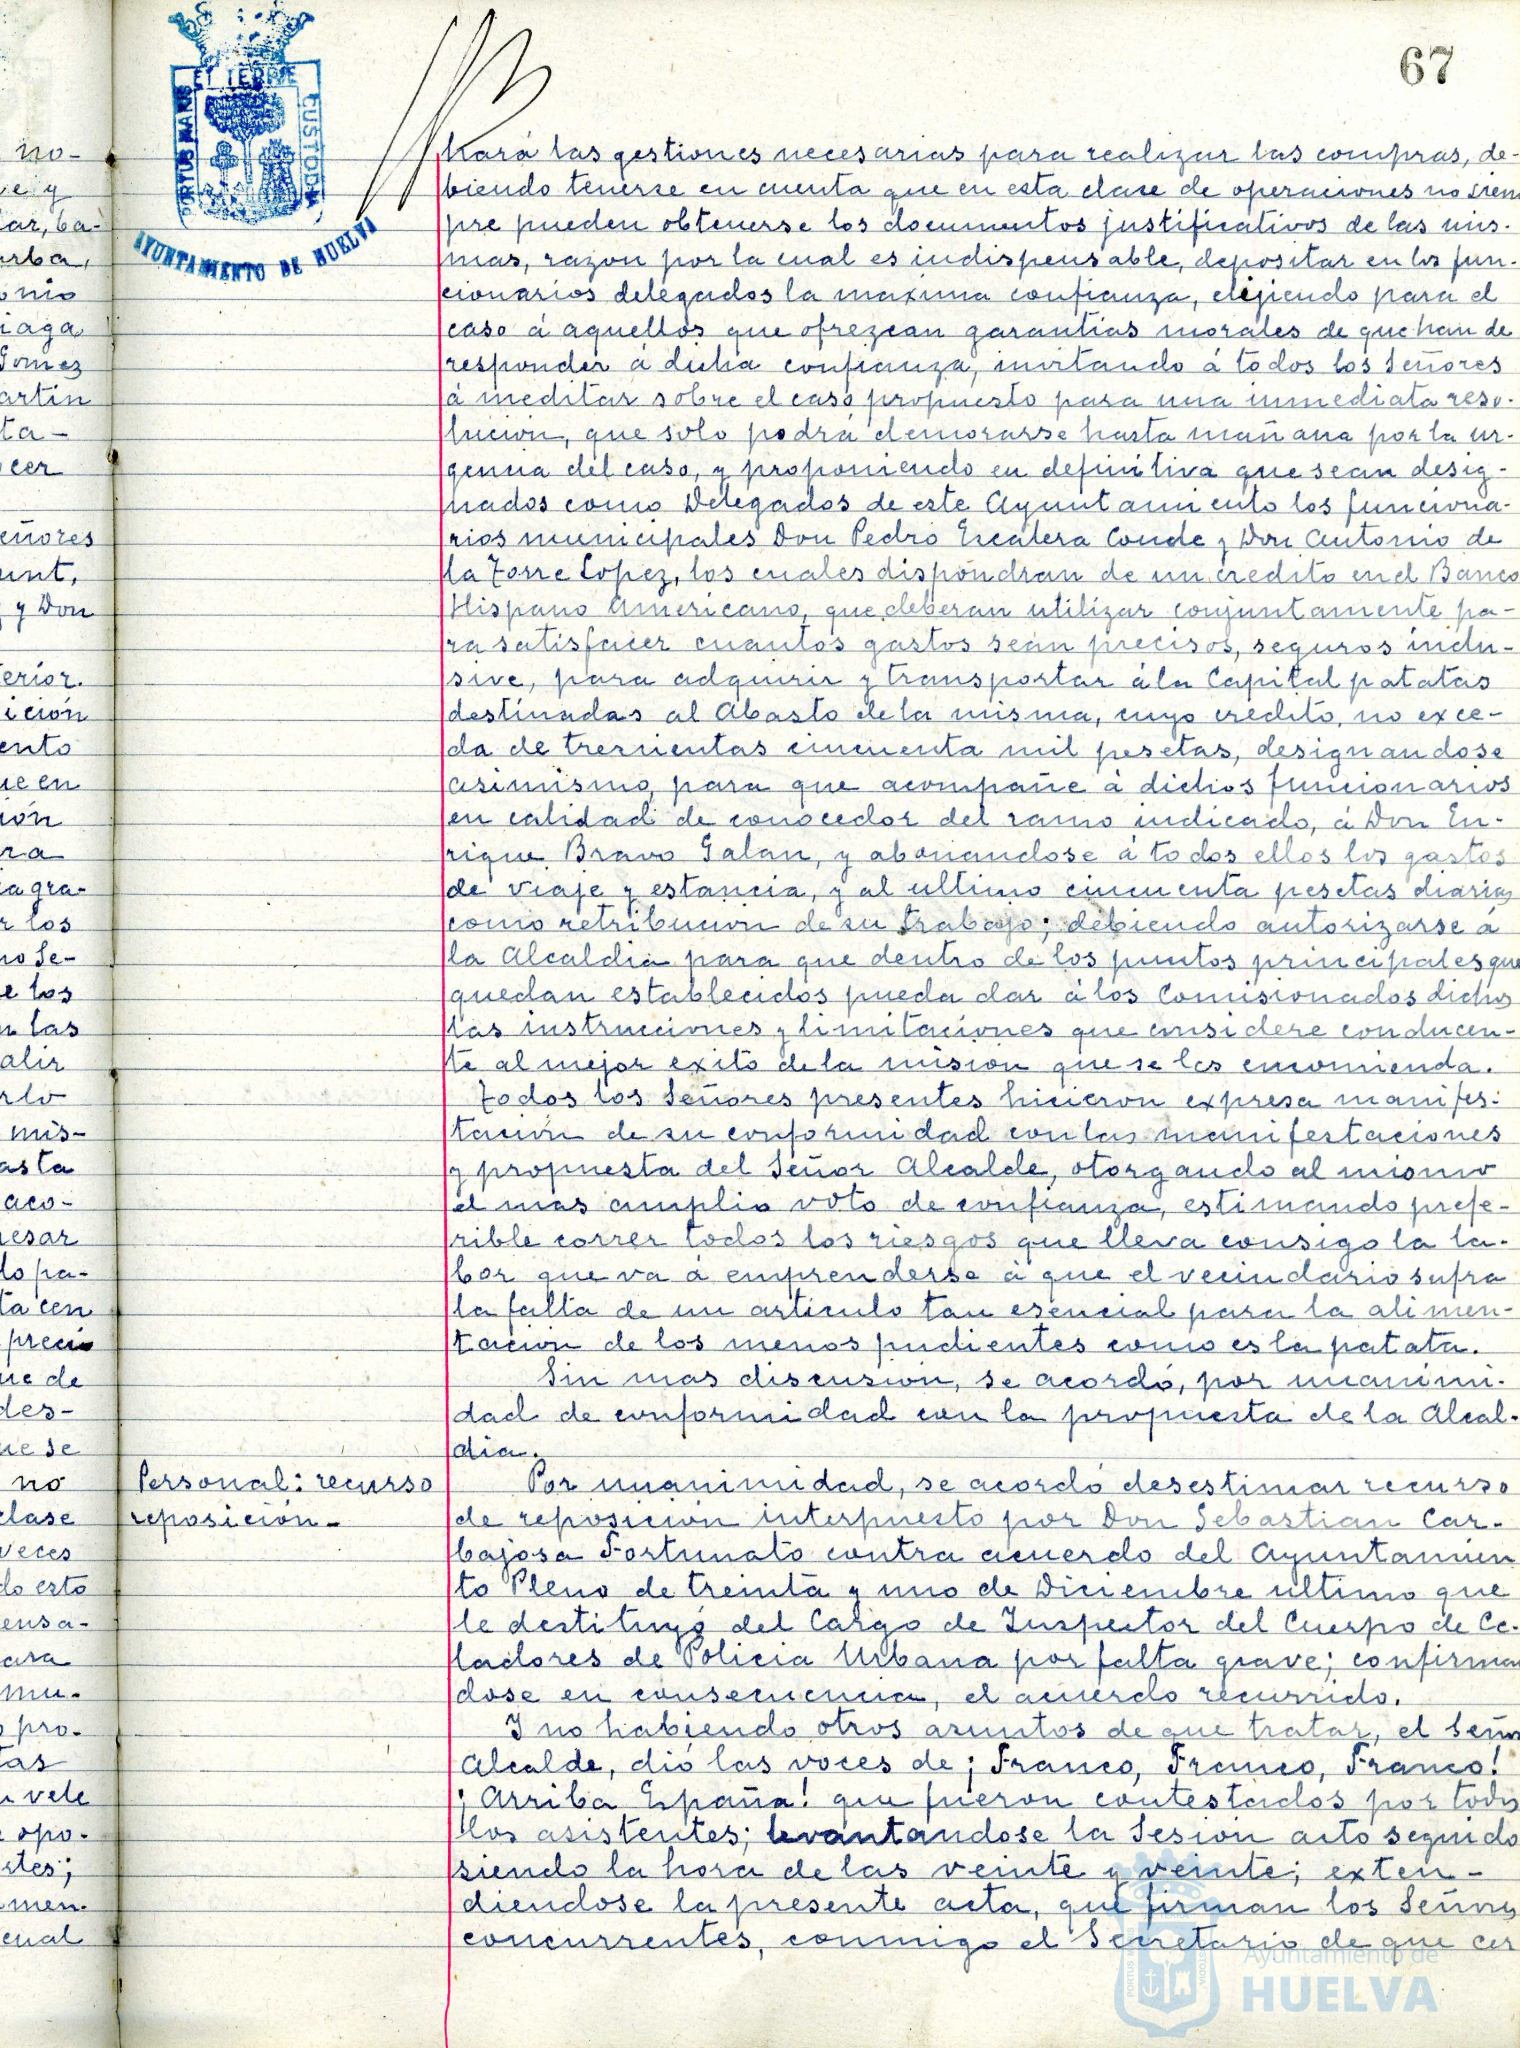 67
PORTUS MARIS ET TERRE CUSTODIA
AYUNTAMIENTO DE HUELVA
hará las gestiones necesarias para realizar las compras, de-
biendo tenerse en cuenta que en esta clase de operaciones no siem
pre pueden obtenerse los documentos justificativos de las mis-
mas, razon por la cual es indispensable, depositar en los fun-
cionarios delegados la maxima confianza, elijiendo para el
caso á aquellos que ofrezcan garantias morales de que han de
responder á dicha confianza, invitando á todos los Señores
á meditar sobre el caso propuesto para una inmediata reso-
lucion, que solo podrá demorarse hasta mañana por la ur-
gencia del caso, y proponiendo en definitiva que sean desig-
nados como Delegados de este Ayuntamiento los funciona-
rios municipales Don Pedro Escalera Conde y Don Antonio de
la Torre Lopez, los cuales dispondran de un credito en el Banco
Hispano Americano, que deberan utilizar conjuntamente pa-
ra satisfacer cuantos gastos sean precisos, seguros inclu-
sive, para adquirir y transportar á la Capital patatas
destinadas al Abasto de la misma, cuyo credito, no exce-
da de trescientas cincuenta mil pesetas, designandose
asimismo, para que acompañe á dichos funcionarios
en calidad de conocedor del ramo indicado, á Don En-
rique Bravo Galan, y abonandose á todos ellos los gastos
de viaje y estancia, y al ultimo cincuenta pesetas diarias
como retribucion de su trabajo; debiendo autorizarse á
la Alcaldia para que dentro de los puntos principales que
quedan establecidos pueda dar á los Comisionados dichos
las instrucciones y limitaciones que considere conducen-
te al mejor exito de la mision que se les encomienda.
Todos los Señores presentes hicieron expresa manifes-
tación de su conformidad con las manifestaciones
y propuesta del Señor Alcalde, otorgando al mismo
el mas amplio voto de confianza, estimando prefe-
rible correr todos los riesgos que lleva consigo la la-
bor que va á emprenderse á que el vecindario sufra
la falta de un articulo tan esencial para la alimen-
tacion de los menos pudientes como es la patata.
Sin mas discusion, se acordó, por unanimi-
dad de conformidad con la propuesta de la Alcal-
dia.
Personal: recurso
reposición-
Por unanimidad, se acordó desestimar recurso
de reposicion interpuesto por Don Sebastian Car-
bajosa Fortunato contra acuerdo del Ayuntamien
to Pleno de treinta y uno de Diciembre ultimo que
le destituyó del Cargo de Inspector del Cuerpo de Ce-
ladores de Policia Urbana por falta grave; confirman
dose en consecuencia, el acuerdo recurrido.
Y no habiendo otros asuntos de que tratar, el Señor
Alcalde, dió las voces de ¡Franco, Franco, Franco!
¡Arriba España! que fueron contestados por todos
los asistentes; levantandose la Sesion acto seguido
siendo la hora de las veinte y veinte; exten-
diendose la presente acta, que firman los Señores
concurrentes, conmigo el Secretario de que cer
Ayuntamiento de
HUELVA